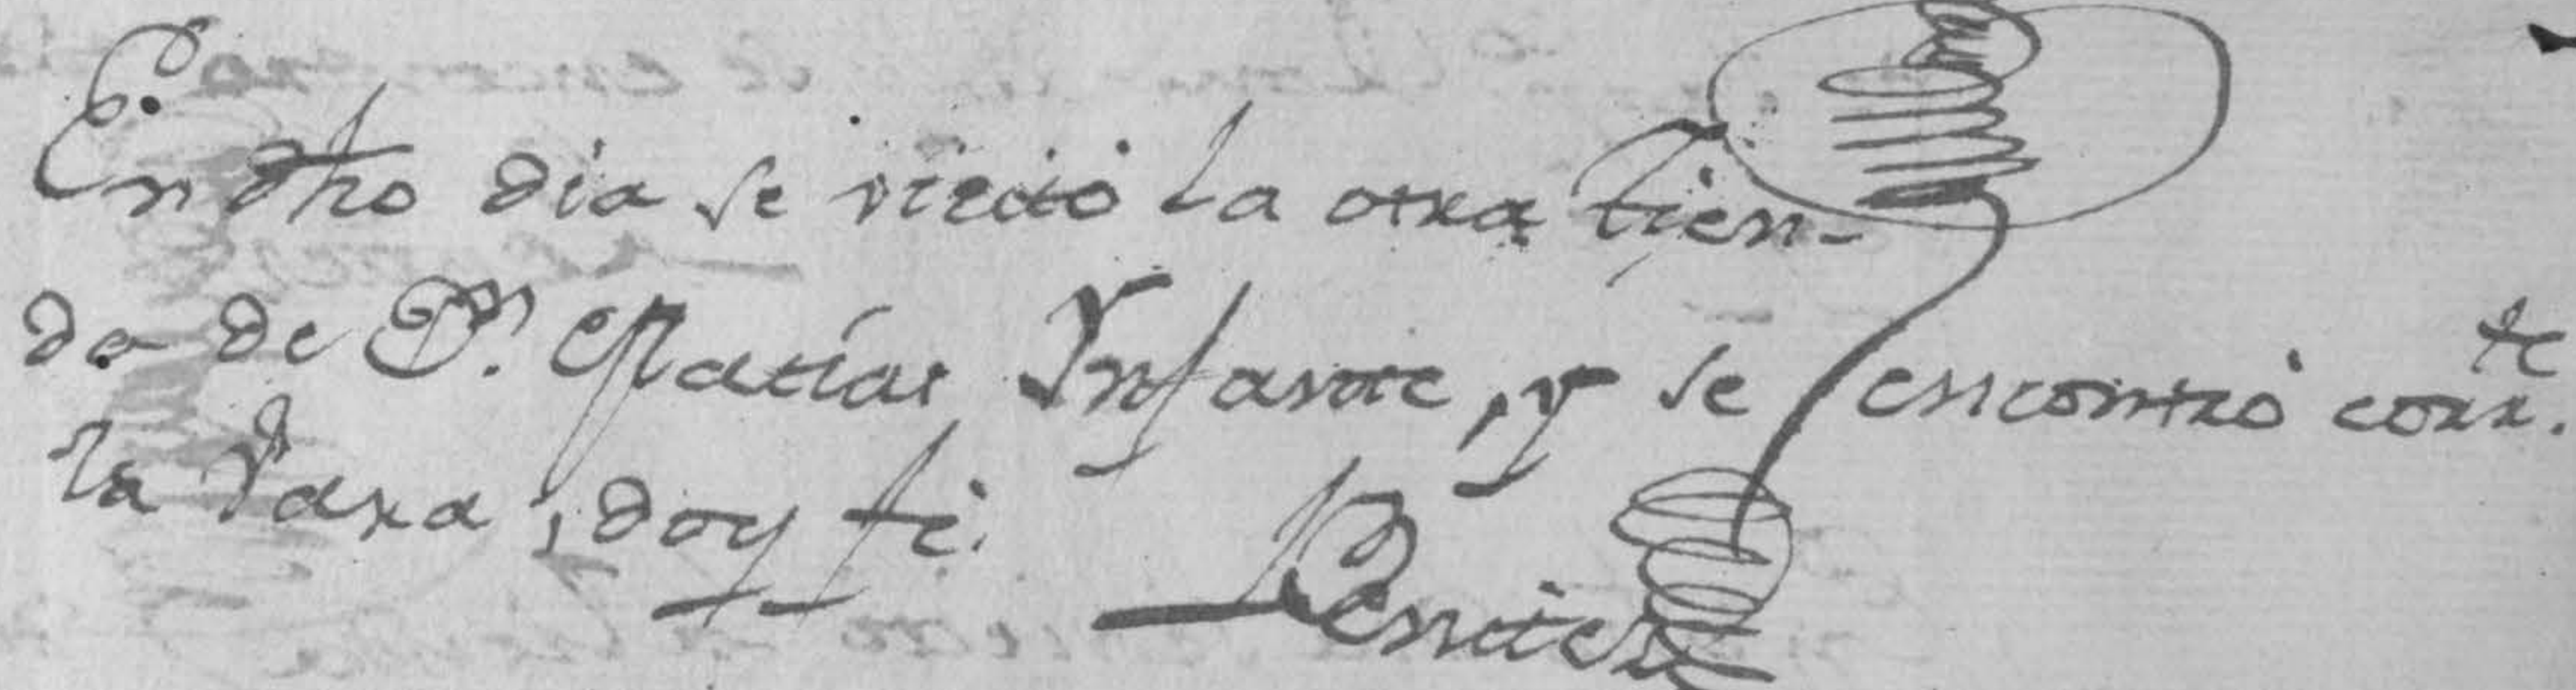 En dho dia se vicitó la otra tien-
da de Dn. Matías Ynfante, y se encontró corrte.
la Vara, doy fé.
Benites